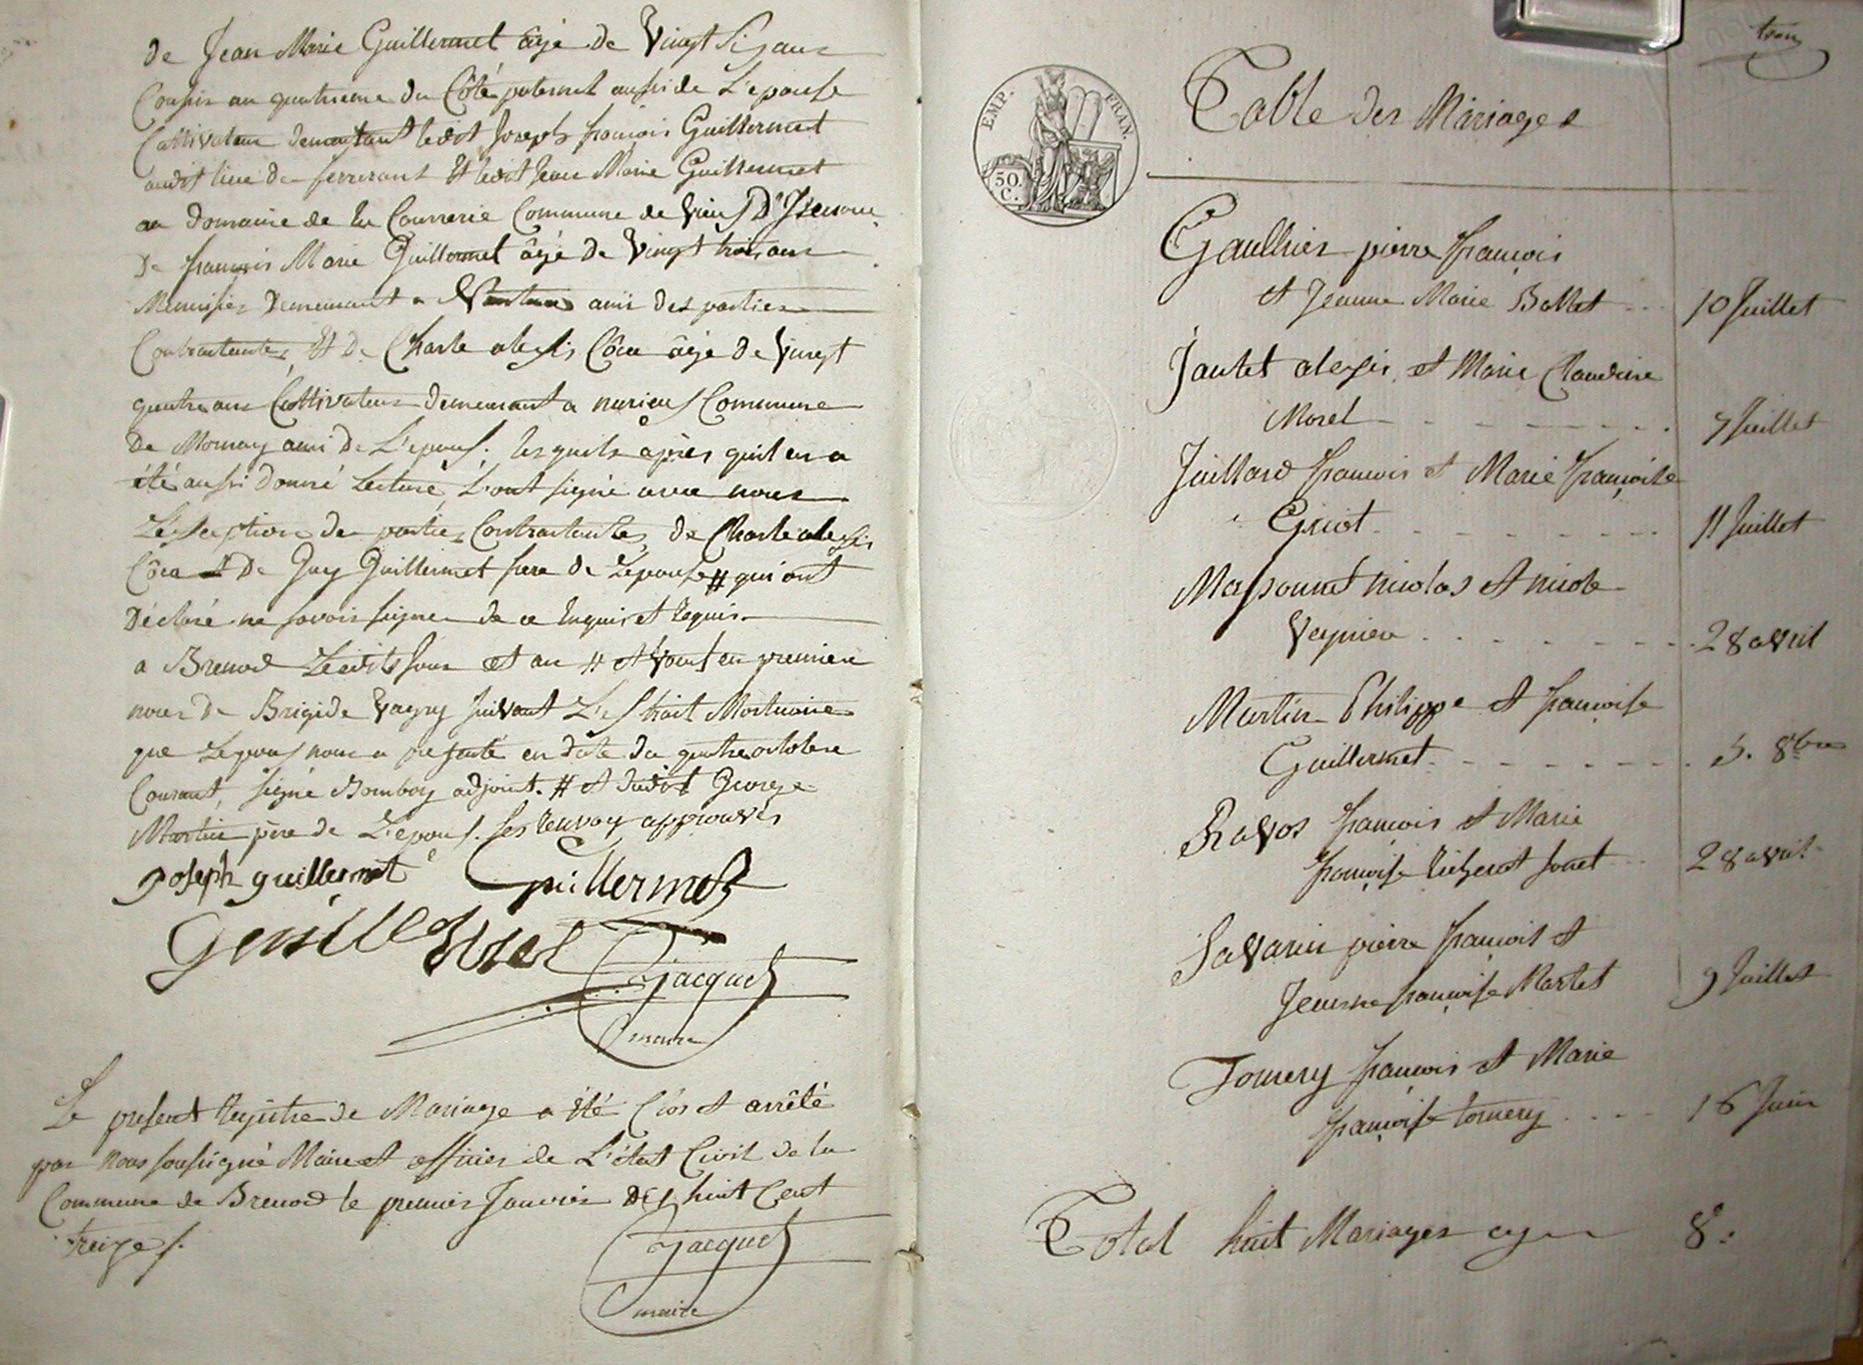 de Jean Marie Guillermet âgé de Vingt Six ans
Cousin au quatrieme du Côté paternel aussi de L'epouse
Cultivateur demeurant ledit Joseph françois Guillermet
audit lieu de ferrerant Et ledit Jean Marie Guillermet
au domaine de la Courrerie Commune de Vieus D'Izenave
De françois Marie Guillermet âgé de Vingt trois ans
Menuisier Demeurant a ami des parties
Contractantes, Et De Charle alexis Côca âgé de Vingt
quatre ans Cultivateur demeurant a nurieux Commune
De Mornay ami de L'epoux. lesquels après quil en a
été aussi donné Lecture, L'ont signé avec nous
L'Exseption des parties Contractantes, de Charle alexis
Côca et De Guy Guillermet frere de Lepouse # qui ont
Déclaré ne savoir signer de ce Enquis et Requis.
a Brenod Lesdits Jour et an # et Vouf en premiere
noces de Brigide Vagny suivant L'Extrait Mortuaire
que Lepoux nous a presenté en date du quatre octobre
Courant, signé Bomboy adjoint. # et dudit George
Martin père de L'epoux. Les Renvoy approuvés
Joseph guillermet Guillermet
Guillermet
Jacquet
maire
Le present Registre de Mariage a été Clos et arrêté
par Nous soussigné Maire et officier de L'état Civil de la
Commune de Brenod le premier Janvier dix huit Cent
treize.
Jacquet
maire
trois
EMP. FRAN.
50. C.
Table des Mariages
Gaulthier pierre françois
et Jeanne Marie Ballet 10 Juillet
Jautet alexis et Marie Claudine
Morel 7 Juillet
Juillard francois et Marie françoise
Griot 11 Juillet
Massonnet nicolas et nicole
Veyniere 28 avril
Martin Philippe et françoise
Guillermet 5. 8bre
Ravos françois et Marie
françoise Jonet 28 avril
Savarin pierre françois et
Jeanne françoise Martet 9 Juillet
Tournery françois et Marie
françoise tournery 16 Juin
Total huit Mariages cy 8: